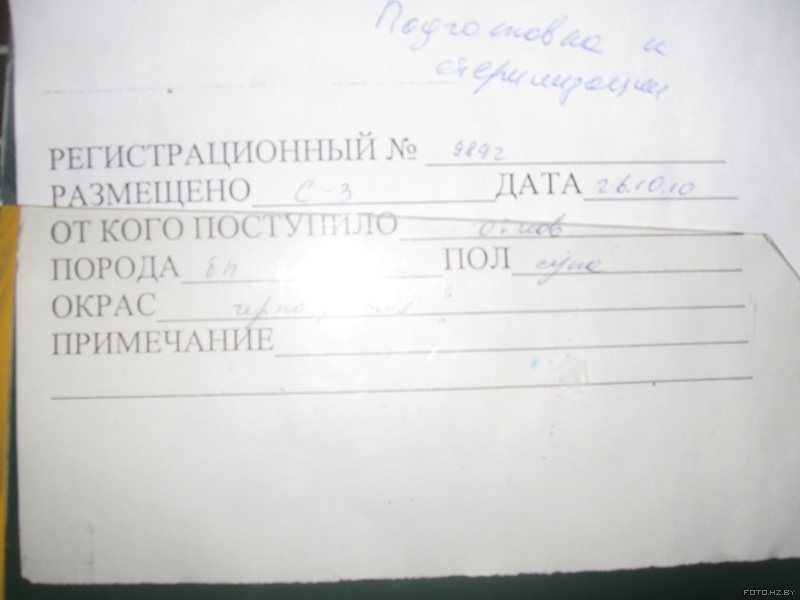 Подготовка к
стерилизации
РЕГИСТРАЦИОННЫЙ № 9892
РАЗМЕЩЕНО С-3 ДАТА 26.10.10
ОТ КОГО ПОСТУПИЛО отлов
ПОРОДА б/п ПОЛ сука
ОКРАС
ПРИМЕЧАНИЕ
FOTO.HZ.BY